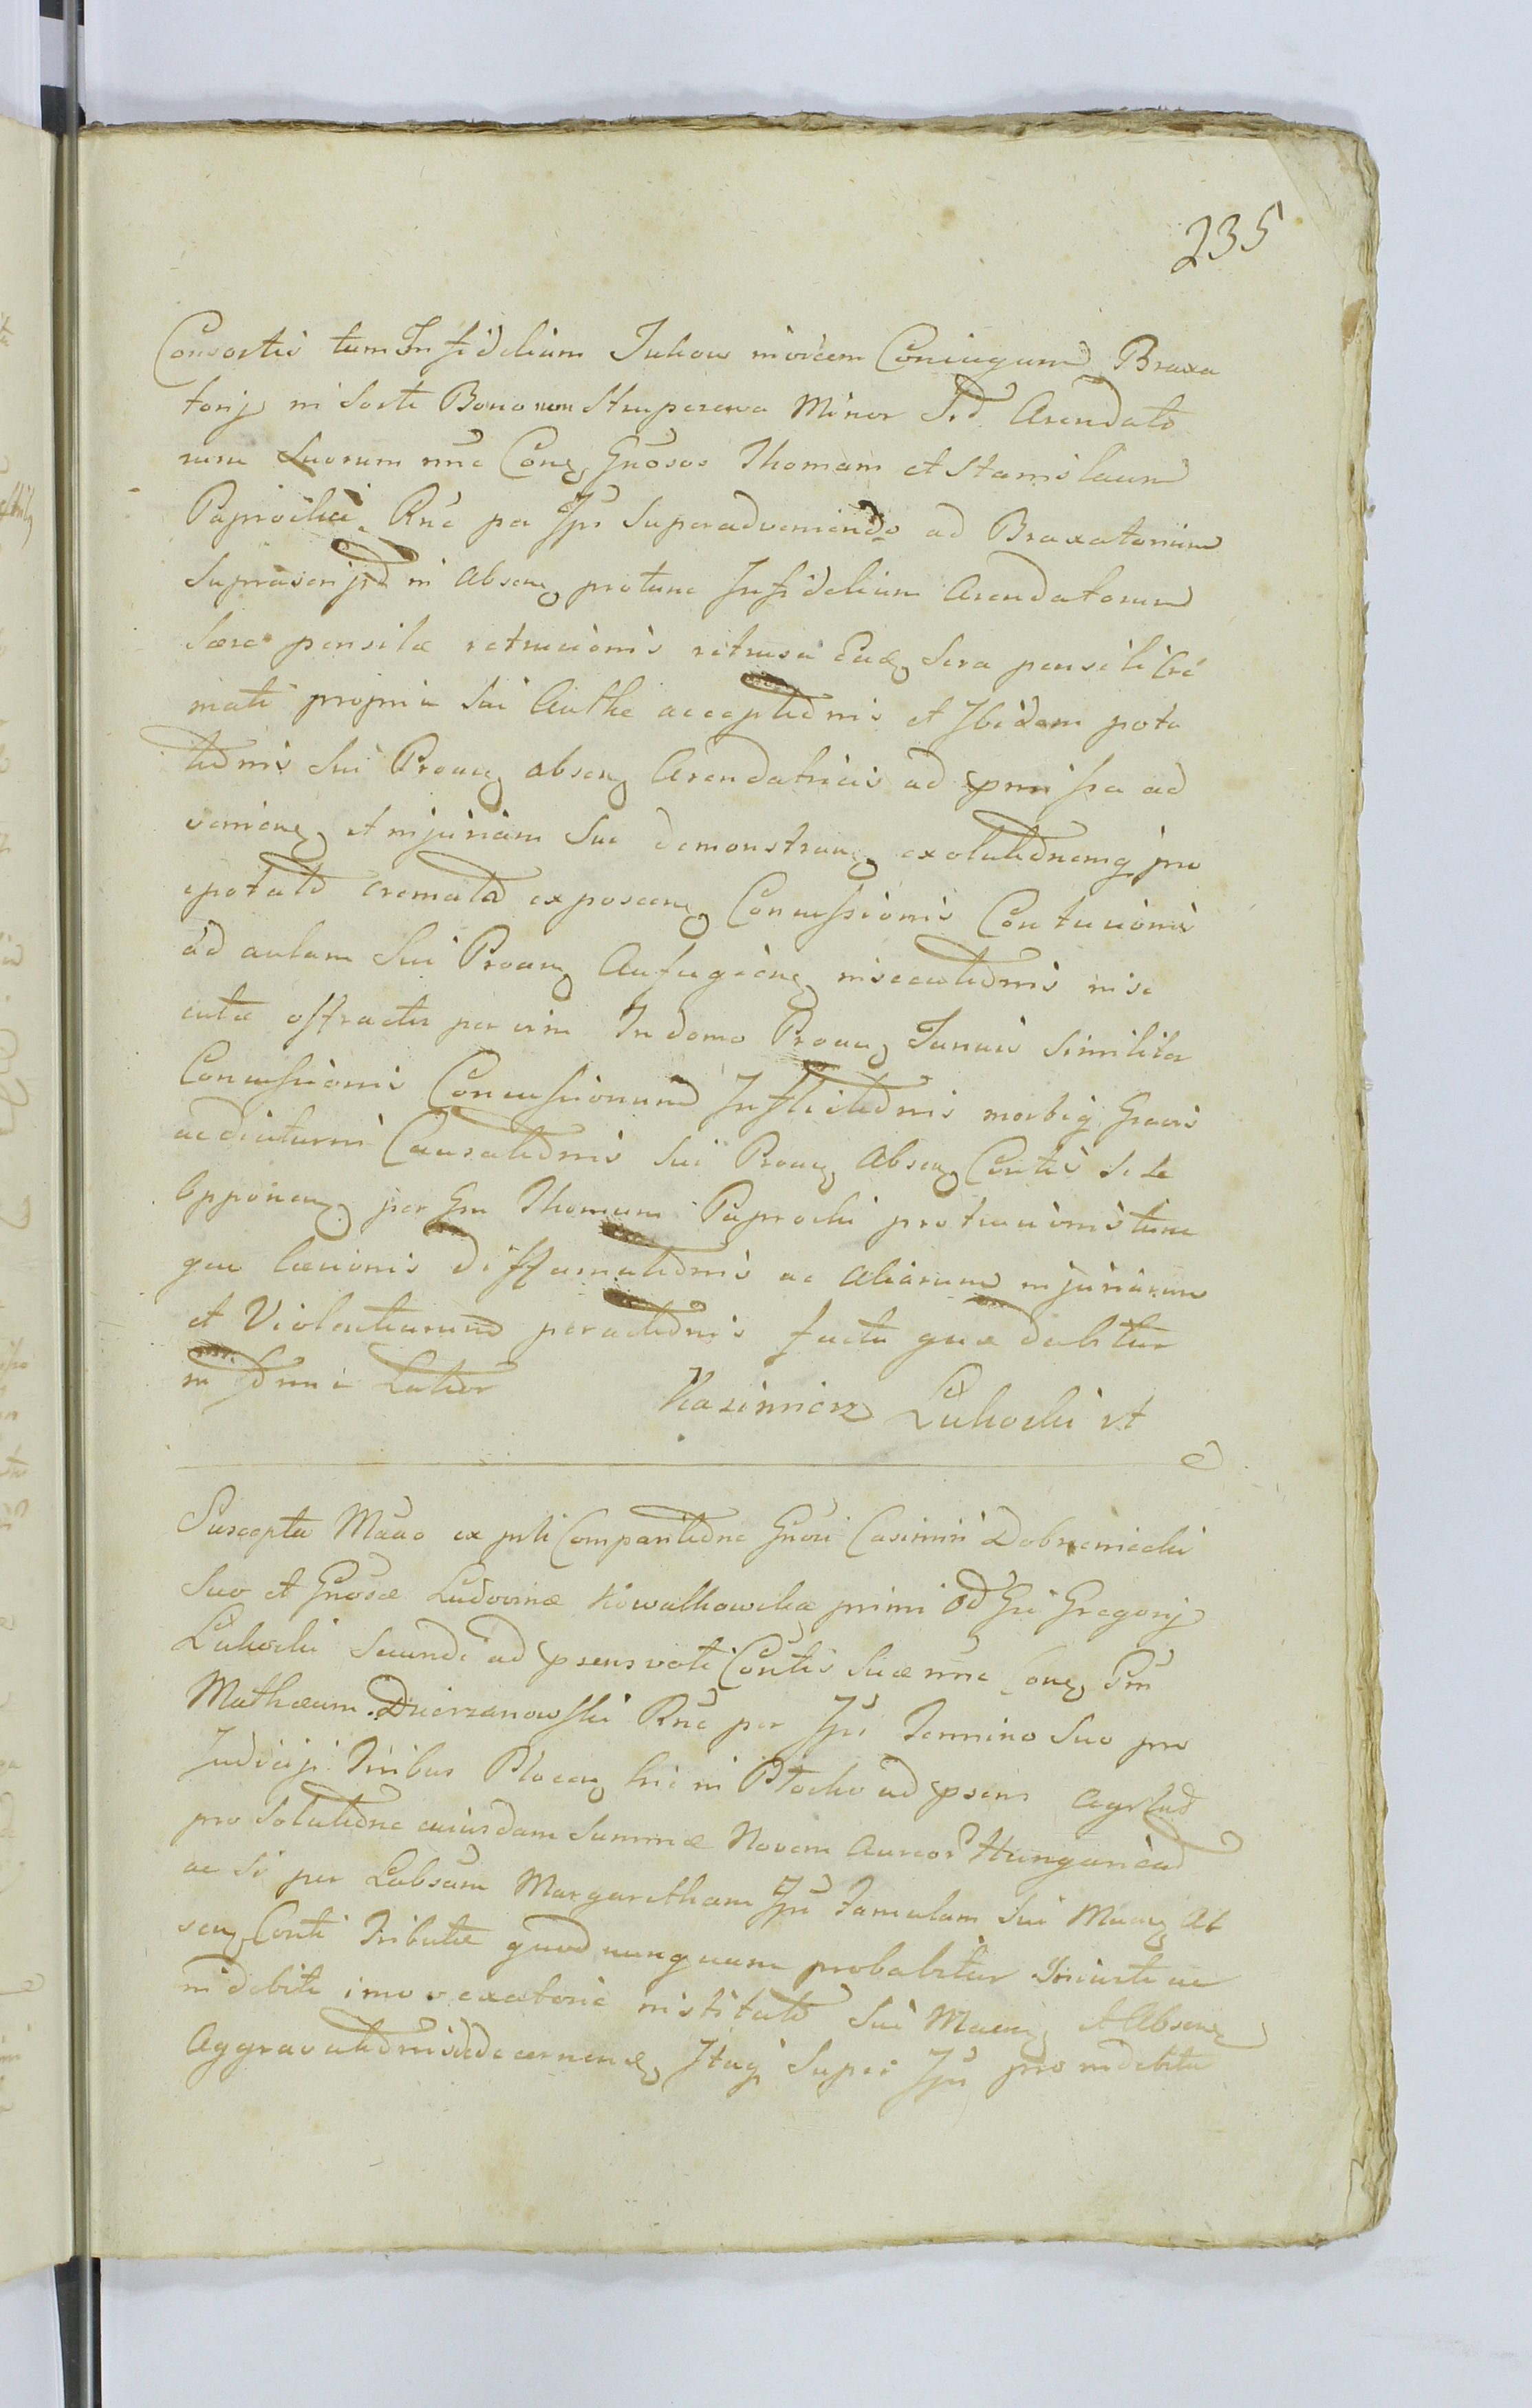 235
Consortis tum Infidelium Iudeorum invicem Coniugum Braxa
torij in Sorte Bonorum Struperewa Minor Ird Arendato
rum Suorum nnc Conq Gnosos Thomam et Stanislaum
Paprockie Rne per Ips Superadveniendo ad Braxatorium
Suprascrijtd in Absenq protunc Infidelium Arendatorum
Seræ pensilæ retrusionis retrusa Eadq Sera pensili Cre
mati propria Sui Authe acceptidnis et Ibidem pota
tidnis Sui Proanq absenq Arendatricis ad pmissa ad
venienq et injuriam Sue demonstranq exolutidnemq pro
epotatd cremata exposcenq Concussionis Contusionis
ad aulam Sui Proanq Aufugienq insecutidnis inse
cutæ effractis per vim In domo Proanq Januis Similiter
Concussionis Concussionumd Inflictidnis morbiq Gravis
ac diuturni Causatidnis Sui Proanq Absenq Contis Se se
Opponenq per Gm Thomam Paprocki protrusionis tum
que læsionis Diffamatidnis ac Aliarum injuriarum
et Violentiarumd peractidnis facta quæ dabitur
in Tdrmi Latior
Kazimierz Lukoski vt
Suscepta Mano ex prli Comparitidne Gnosi Casimiri Dobrzenieckii
Suo et Gnosæ Ludovicæ Kowalkowska primi od Gsi Gregorij
Lukoski Secundi ad psens voti Contis Suæ nnc Conq Gm
Mathæum Dzierzanowski Rne per Ips Termino Suo pro
Judicijs Tiribus Plocenq hic in Plocko ad psens Agvtud
pro Solutidne eiusdam Summæ Novem Aureor Hungaricad
ac Si per Labsam Margaretham Ips Famulam Sui Manq Ab
senq Conti Tributæ quod nunquam probabitur Iniuste ac
indebite imo vexatorie institutd Sui Manq et Absenq
Aggravatidnis decernenq Itaq Super Ips pro indebita